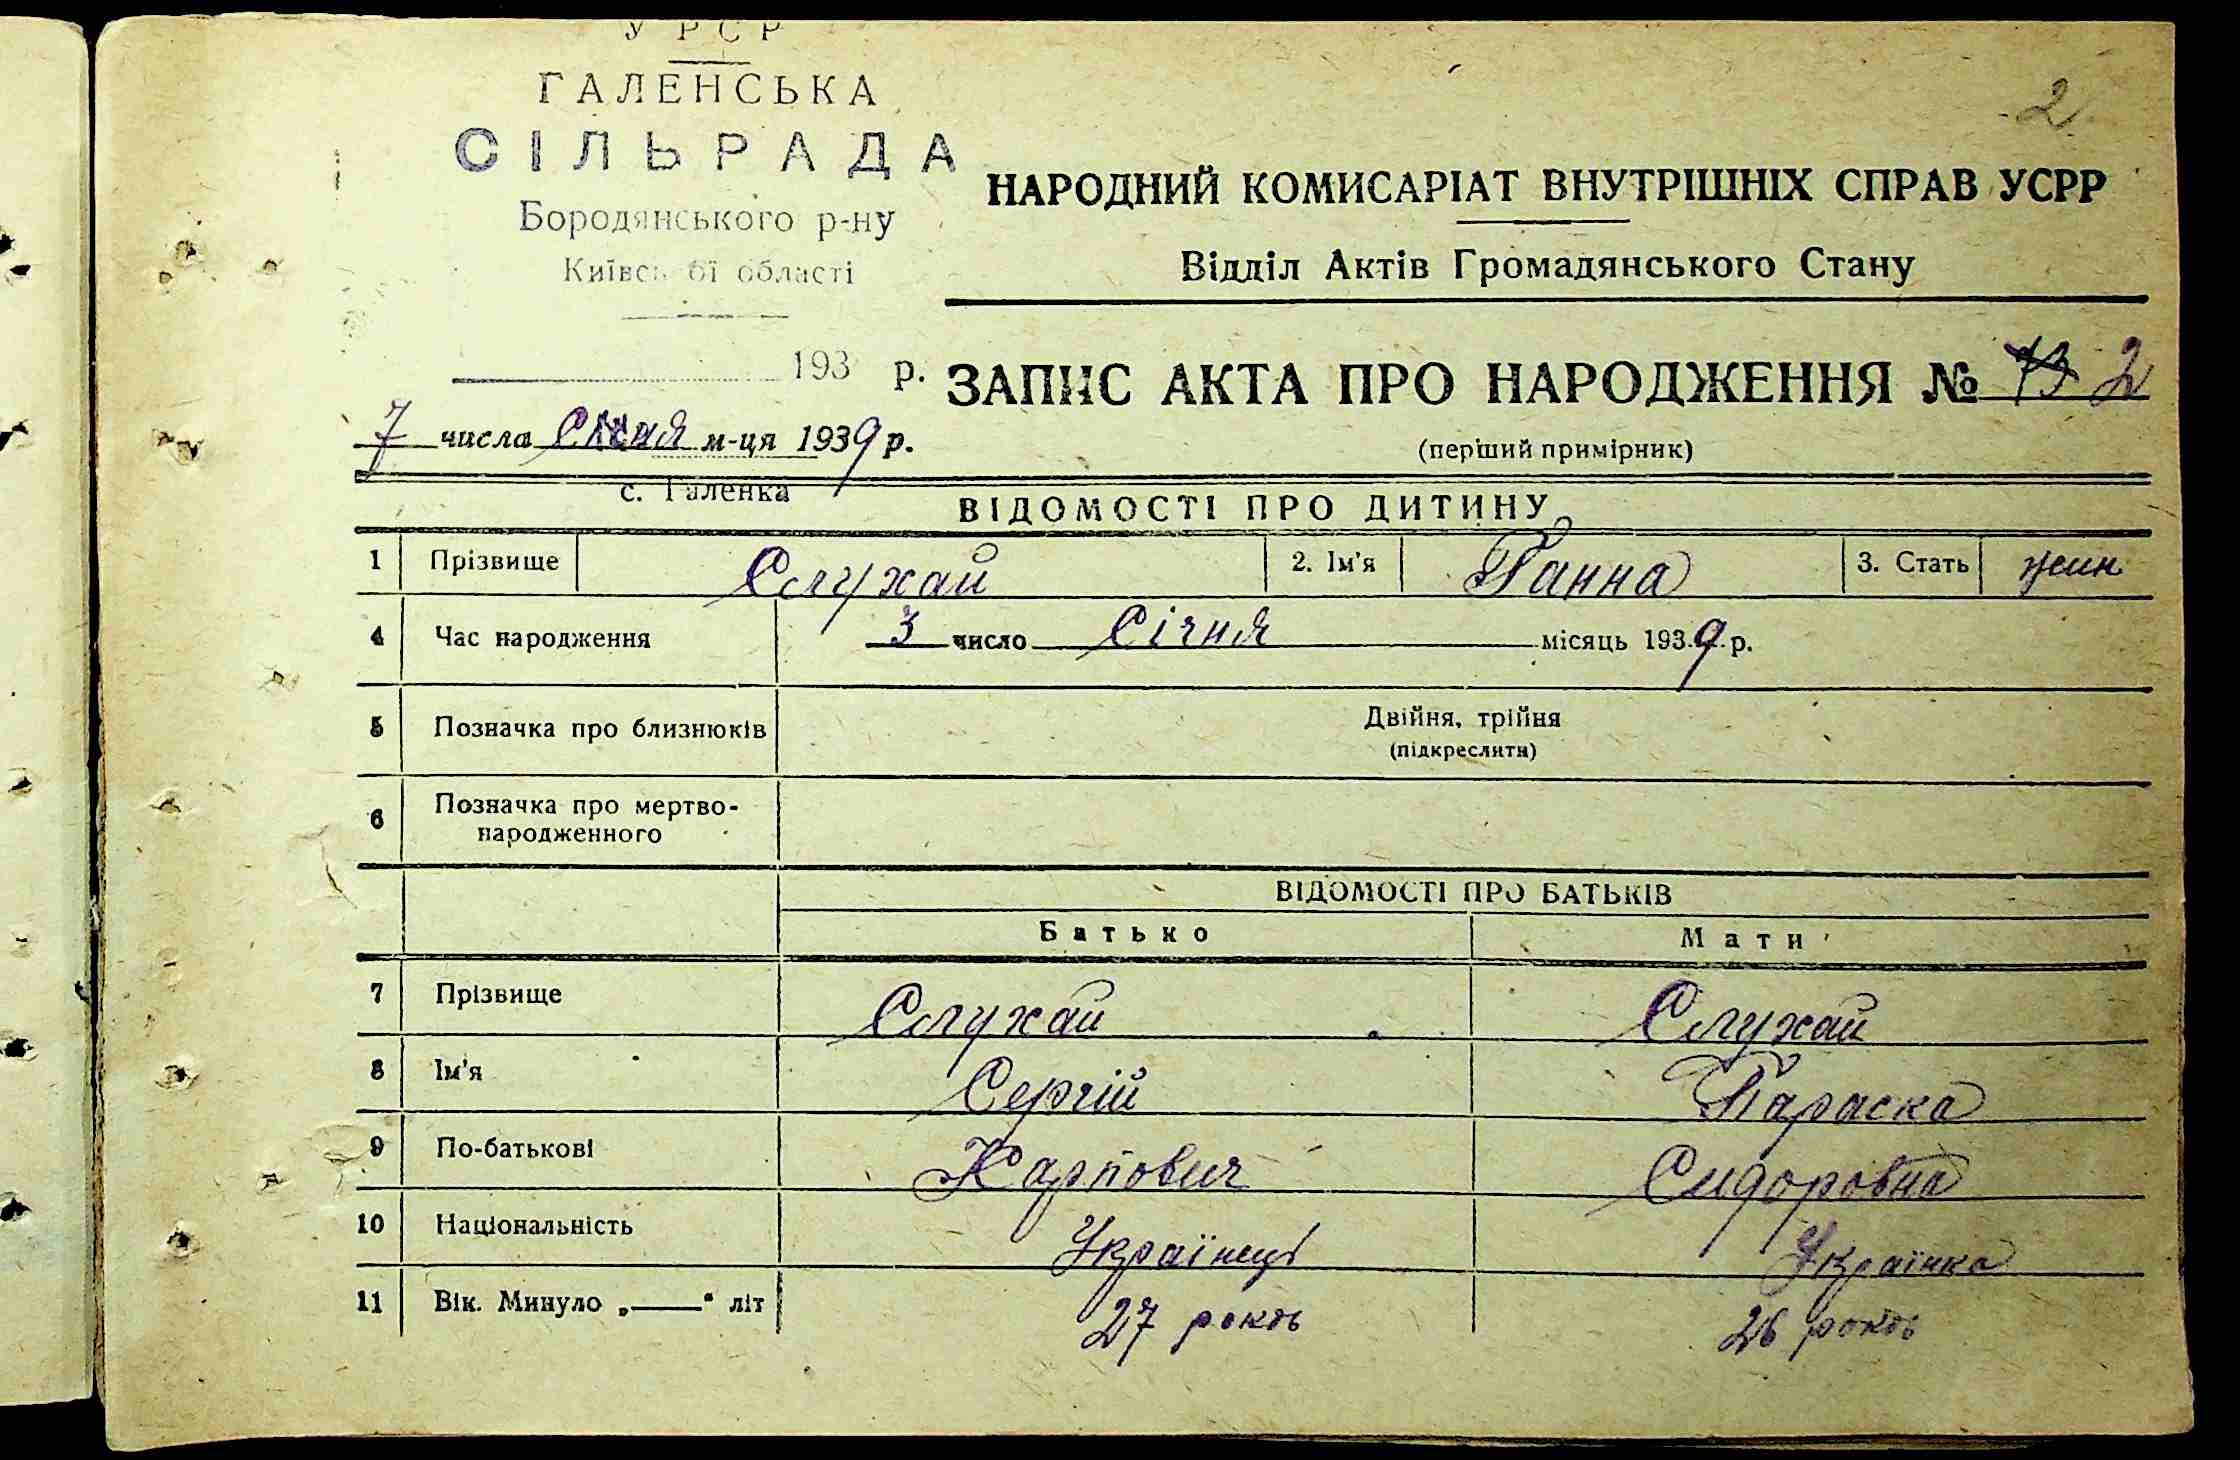 УРСР
ГАЛЕНСЬКА
СІЛЬРАДА
Бородянського р-ну
Київської області
2
НАРОДНИЙ КОМИСАРІАТ ВНУТРІШНІХ СПРАВ УСРР
Відділ Актів Громадянського Стану
193 р.
ЗАПИС АКТА ПРО НАРОДЖЕННЯ № 2
(перший примірник)
7 числа Січня м-ця 1939 р.
с. Галенка
ВІДОМОСТІ ПРО ДИТИНУ
1 Прізвище Слухай 2. Ім'я Ганна 3. Стать жин
4 Час народження 3 число Січня місяць 1939 р.
5 Позначка про близнюків Двійня, трійня
(підкреслити)
6 Позначка про мертво-
народженного
ВІДОМОСТІ ПРО БАТЬКІВ
Батько Мати
7 Прізвище Слухай Слухай
8 Ім'я Сергій Параска
9 По-батькові Карпович Сидоровна
10 Національність Українець Українка
11 Вік. Минуло „——" літ 27 років 26 років